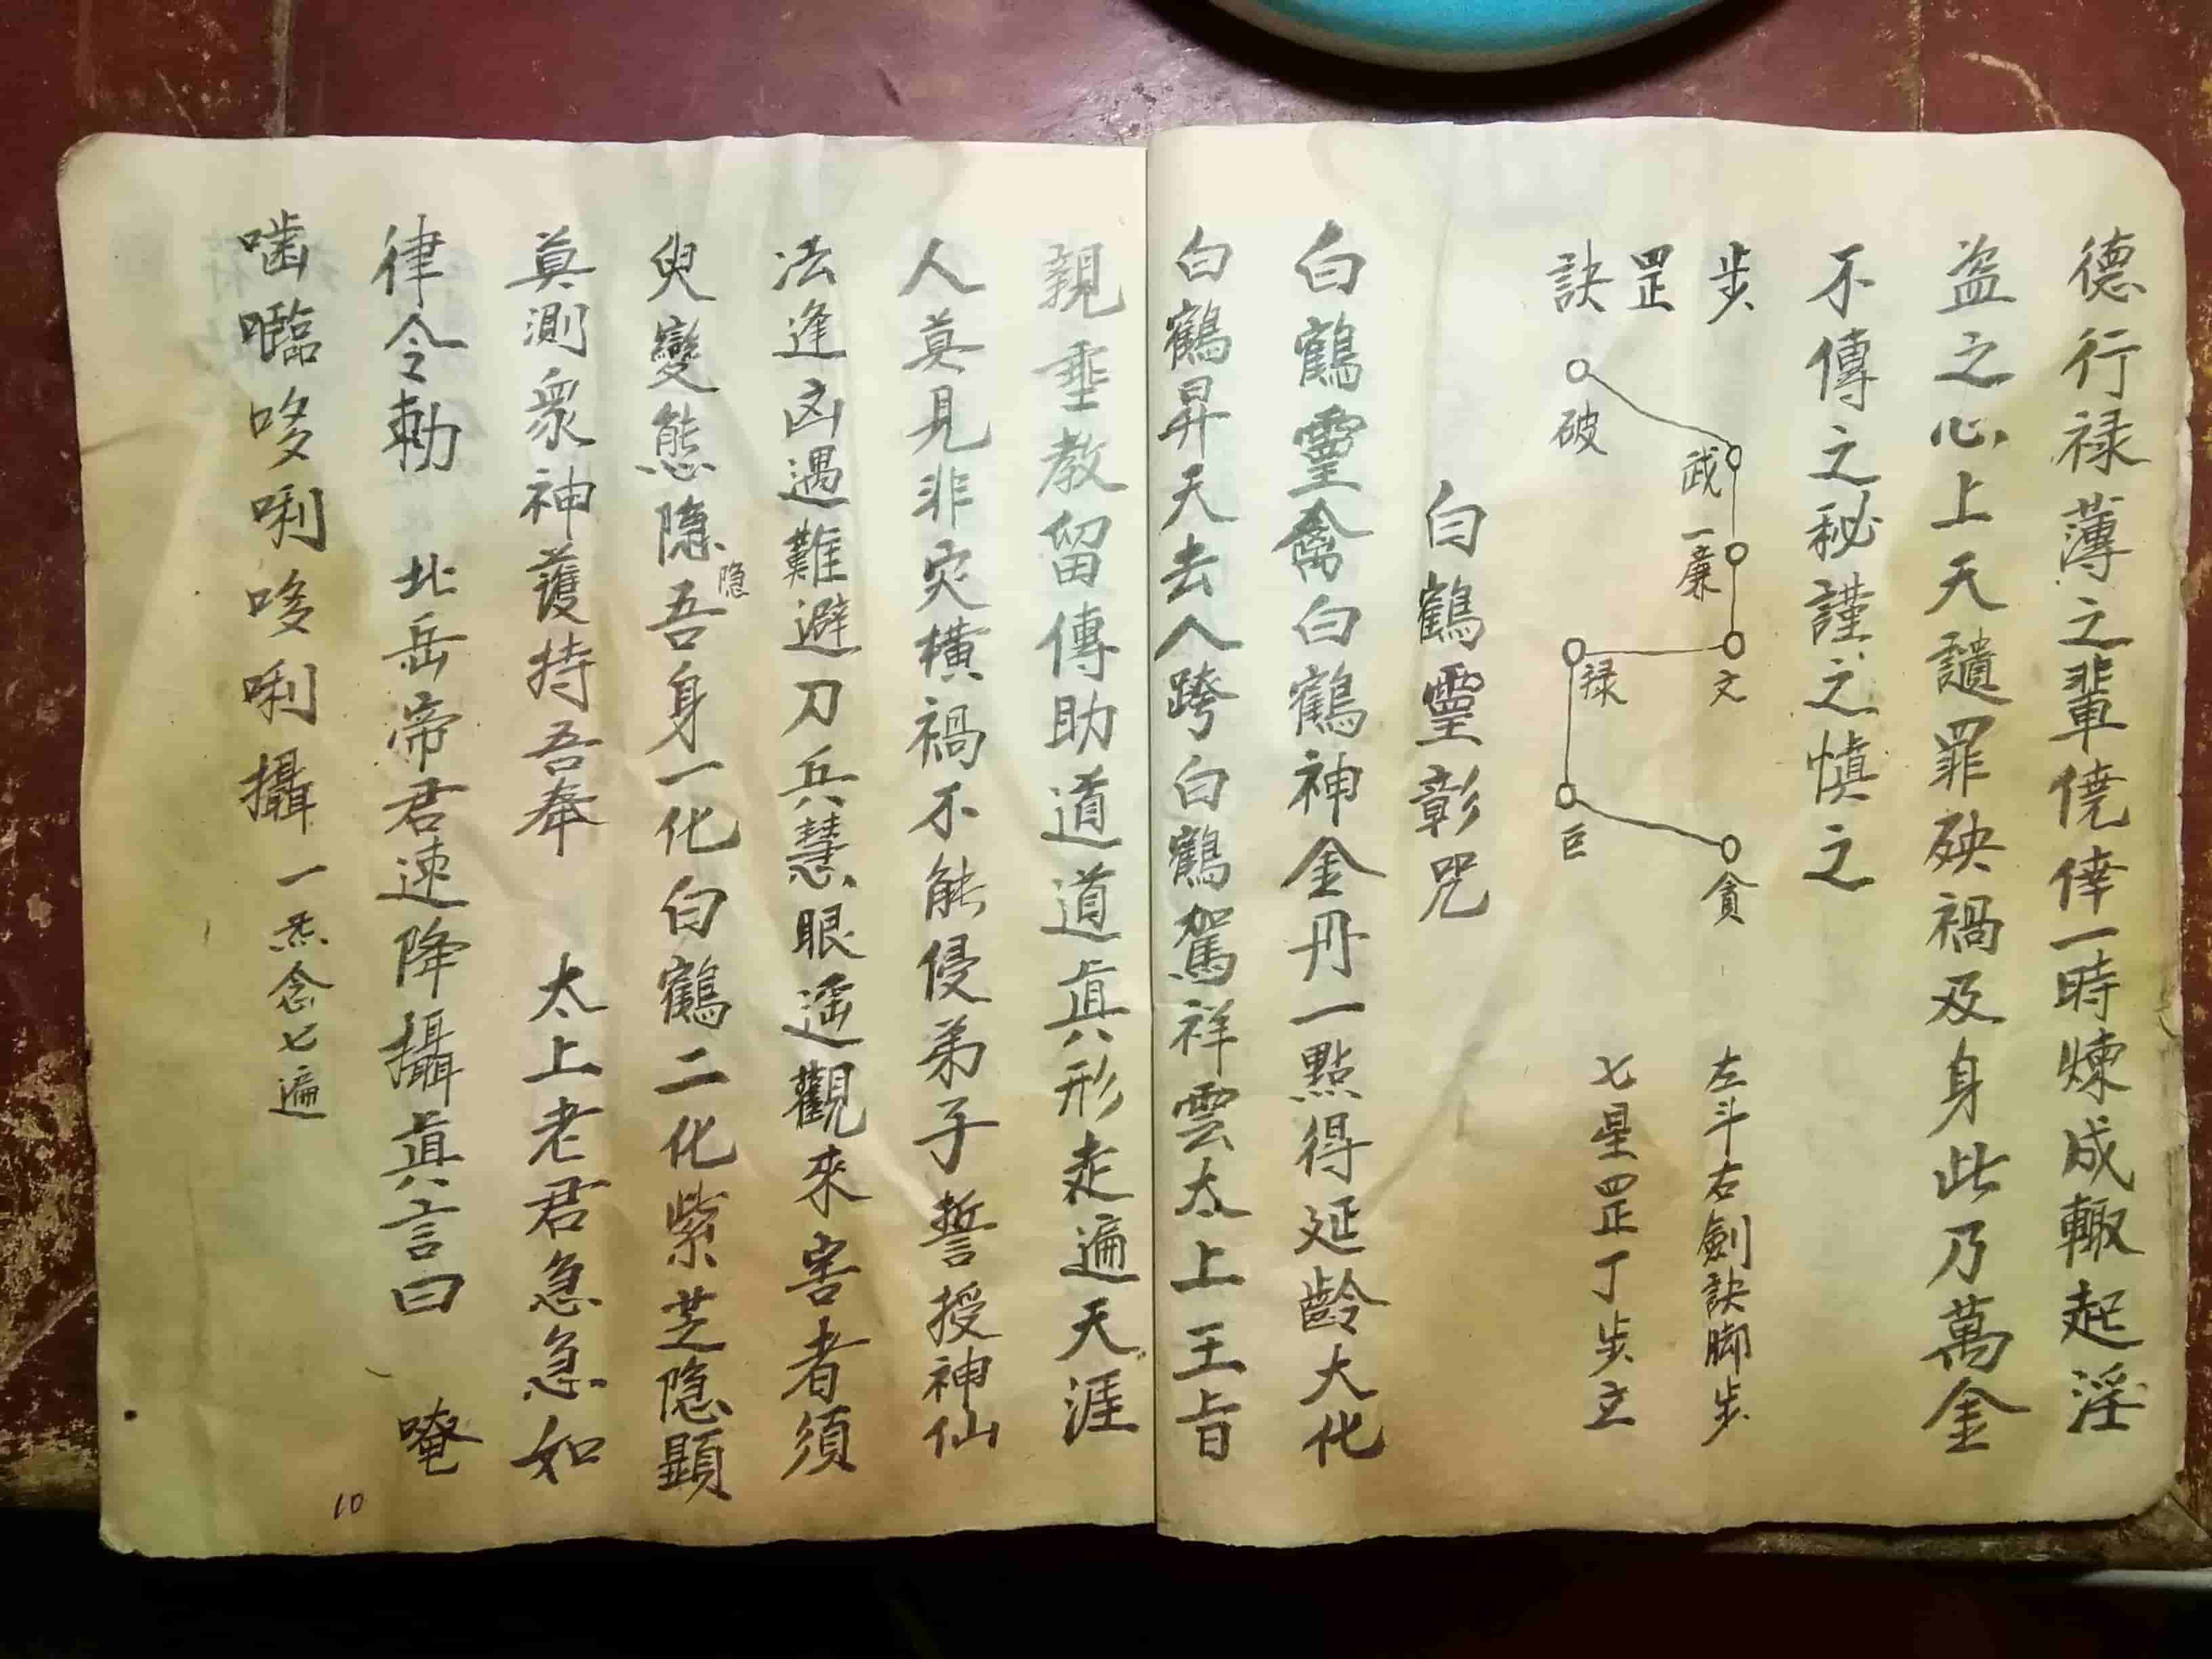 德行禄薄之輩僥倖一時煉成輙起淫
盗之心上天譴罪殃禍及身此乃萬金
不傳之秘謹之慎之
步罡訣
破
武
一廉
文
禄
巨
貪
左斗右劍訣脚步
七星罡丁步立
白鶴靈彰咒
白鶴靈禽白鶴神金丹一點得延齡大化
白鶴昇天去人跨白鶴駕祥雲太上玉旨
親垂教留傳助道道真形走遍天涯
人莫見非灾橫禍不能侵弟子誓授神仙
法逢凶遇難避刀兵慧眼遥觀來害者須
臾變態隐吾身一化白鶴二化紫芝隐顯
隐
莫測衆神護持吾奉 太上老君急急如
律令勅 北岳帝君速降攝真言曰 唵
嚙㘕哆唎哆唎攝 一炁念七遍
10